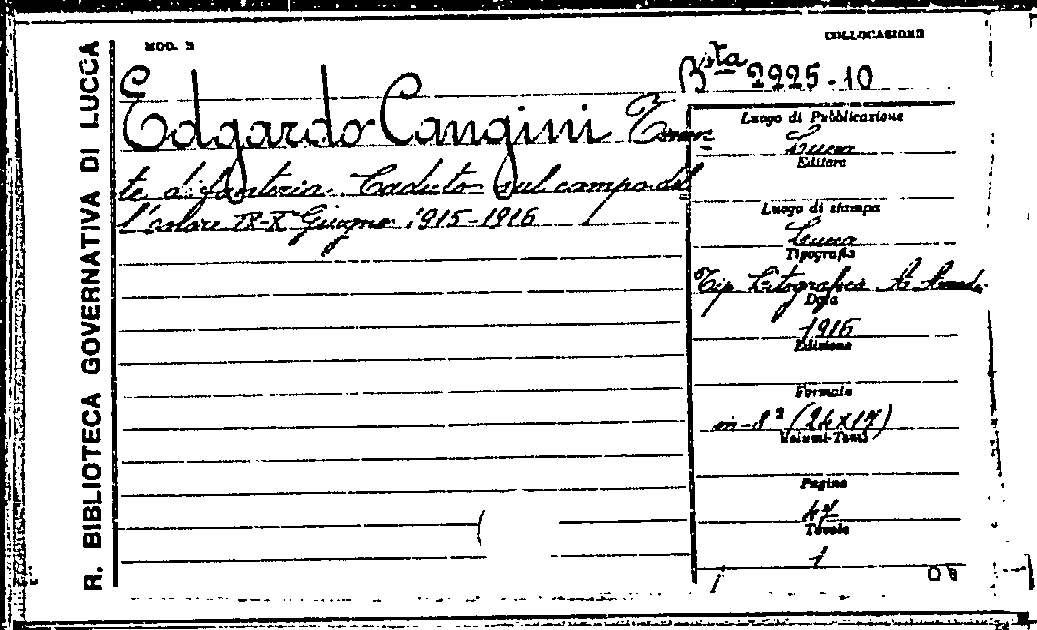 R. BIBLIOTECA GOVERNATIVA DI LUCCA
MOD. 3
COLLOCAZIONE
Bta 2925-10
Edgardo Cangini Tenen
te di fanteria. Caduto sul campo del
l'onore IX-X Giugno 1915-1916
Luogo di Pubblicazione
Lucca
Editore
Luogo di stampa
Lucca
Tipografia
Tip Litografica A.
Data
1916
Edizione
Formato
in-8° (24x17)
Volumi-Tomi
Pagine
47
Tavole
1